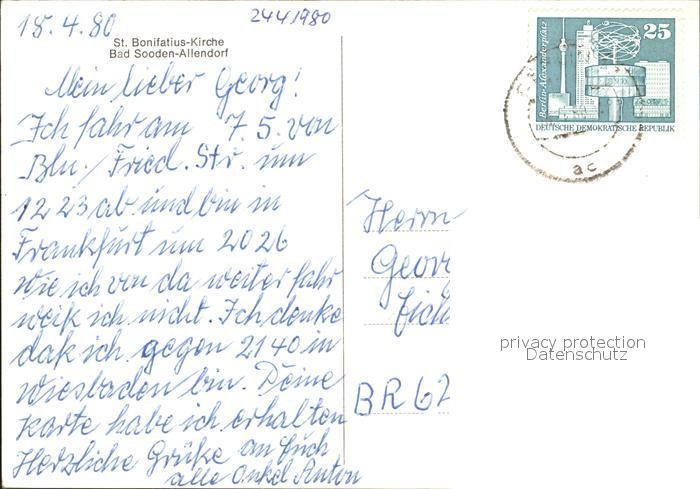 18.4.80
24411980
St. Bonifatius-Kirche
Bad Sooden-Allendorf
Mein lieber Georg!
Ich fahr am 7.5. von
Bln./Fried. Str. um
1223 ab und bin in
Frankfurt um 2026
Wie ich von da weiter fahr
weiß ich nicht. Ich denke
daß ich gegen 2140 in
Wiesbaden bin. Deine
Karte habe ich erhalten
Herzliche Grüße an Euch
alle Onkel Anton
Berlin-Alexanderplatz
25
DEUTSCHE DEMOKRATISCHE REPUBLIK
ac
Herrn
Geor
BR 62
privacy protection
Datenschutz